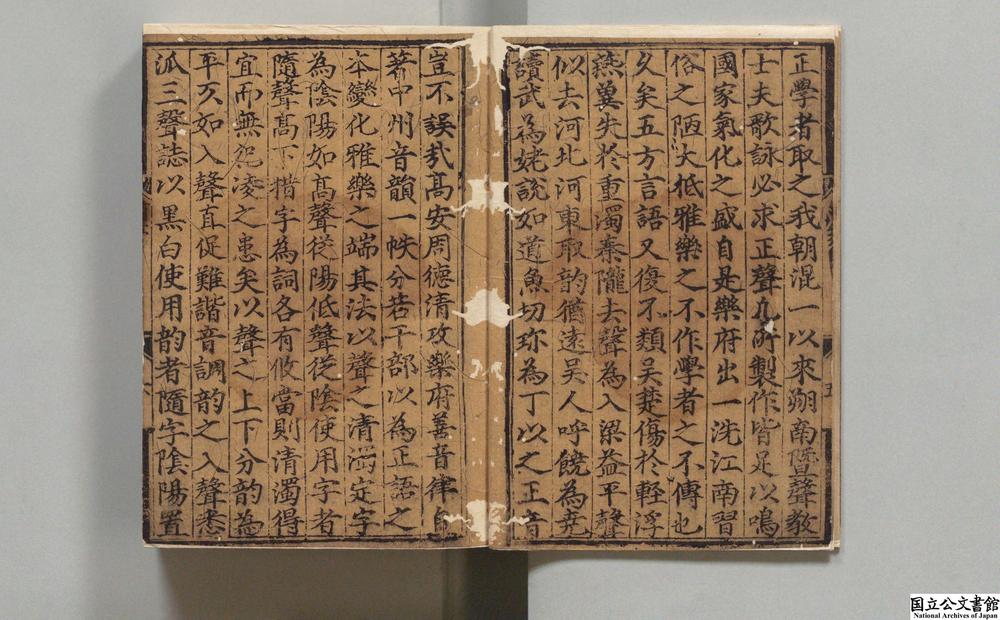 正學者取之我朝混一以來朔南暨聲教
士夫歌詠必求正聲凢所製作皆足以鳴
國家氣化之盛自是樂府出一洗江南習
俗之陋大抵雅樂之不作學者之不傳也
久矣五方言語又復不類吴楚傷於輕浮
燕冀失於重濁秦隴去聲為入梁益平聲
似去河北河東取韵猶遠吴人呼饒為尭
讀武為姥說如道魚切珎為丁以之正音
豈不誤㢤髙安周德清攻樂府善音律自
著中州音韻一帙分若干部以為正語之
夲變化雅樂之端其法以聲之清濁㝎字
為陰陽如髙聲從陽低聲從陰使用字者
隨聲髙下措字為詞各有攸當則清濁得
宜而無凌之患矣以聲之上下分韵為
平仄如入聲直促難諧音調韵之入聲悉
派三聲誌以黒白使用韵者隨字陰陽置
国立公文書館
National Archives of Japan